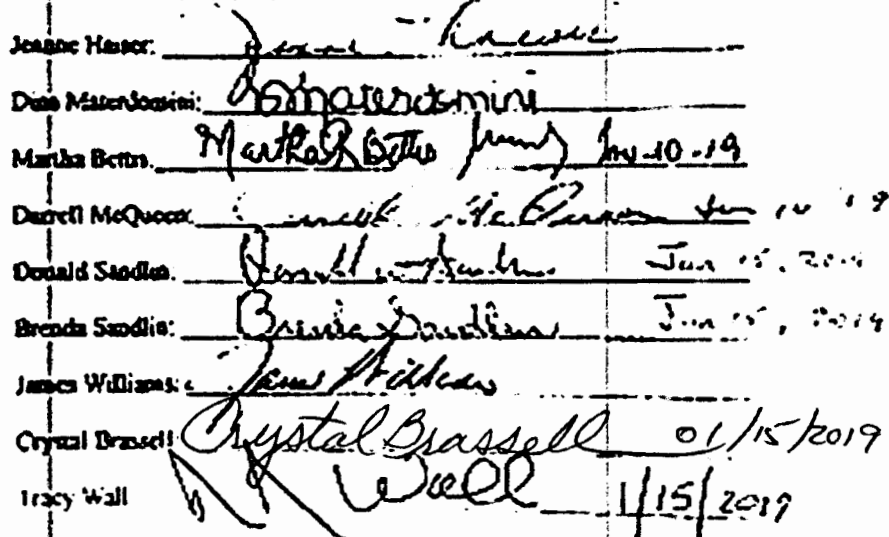 Jeanne Hasser:
Dina Materdomini:
Martha Betts: Martha Betts Jan-10-19
Darrell McQueen:
Donald Sandlin: Jan 15, 2019
Brenda Sandlin: Brenda Sandlin Jan 15, 2019
James Williams: James Williams
Crystal Brassell Crystal Brassell 01/15/2019
Tracy Wall Wall 1/15/2019